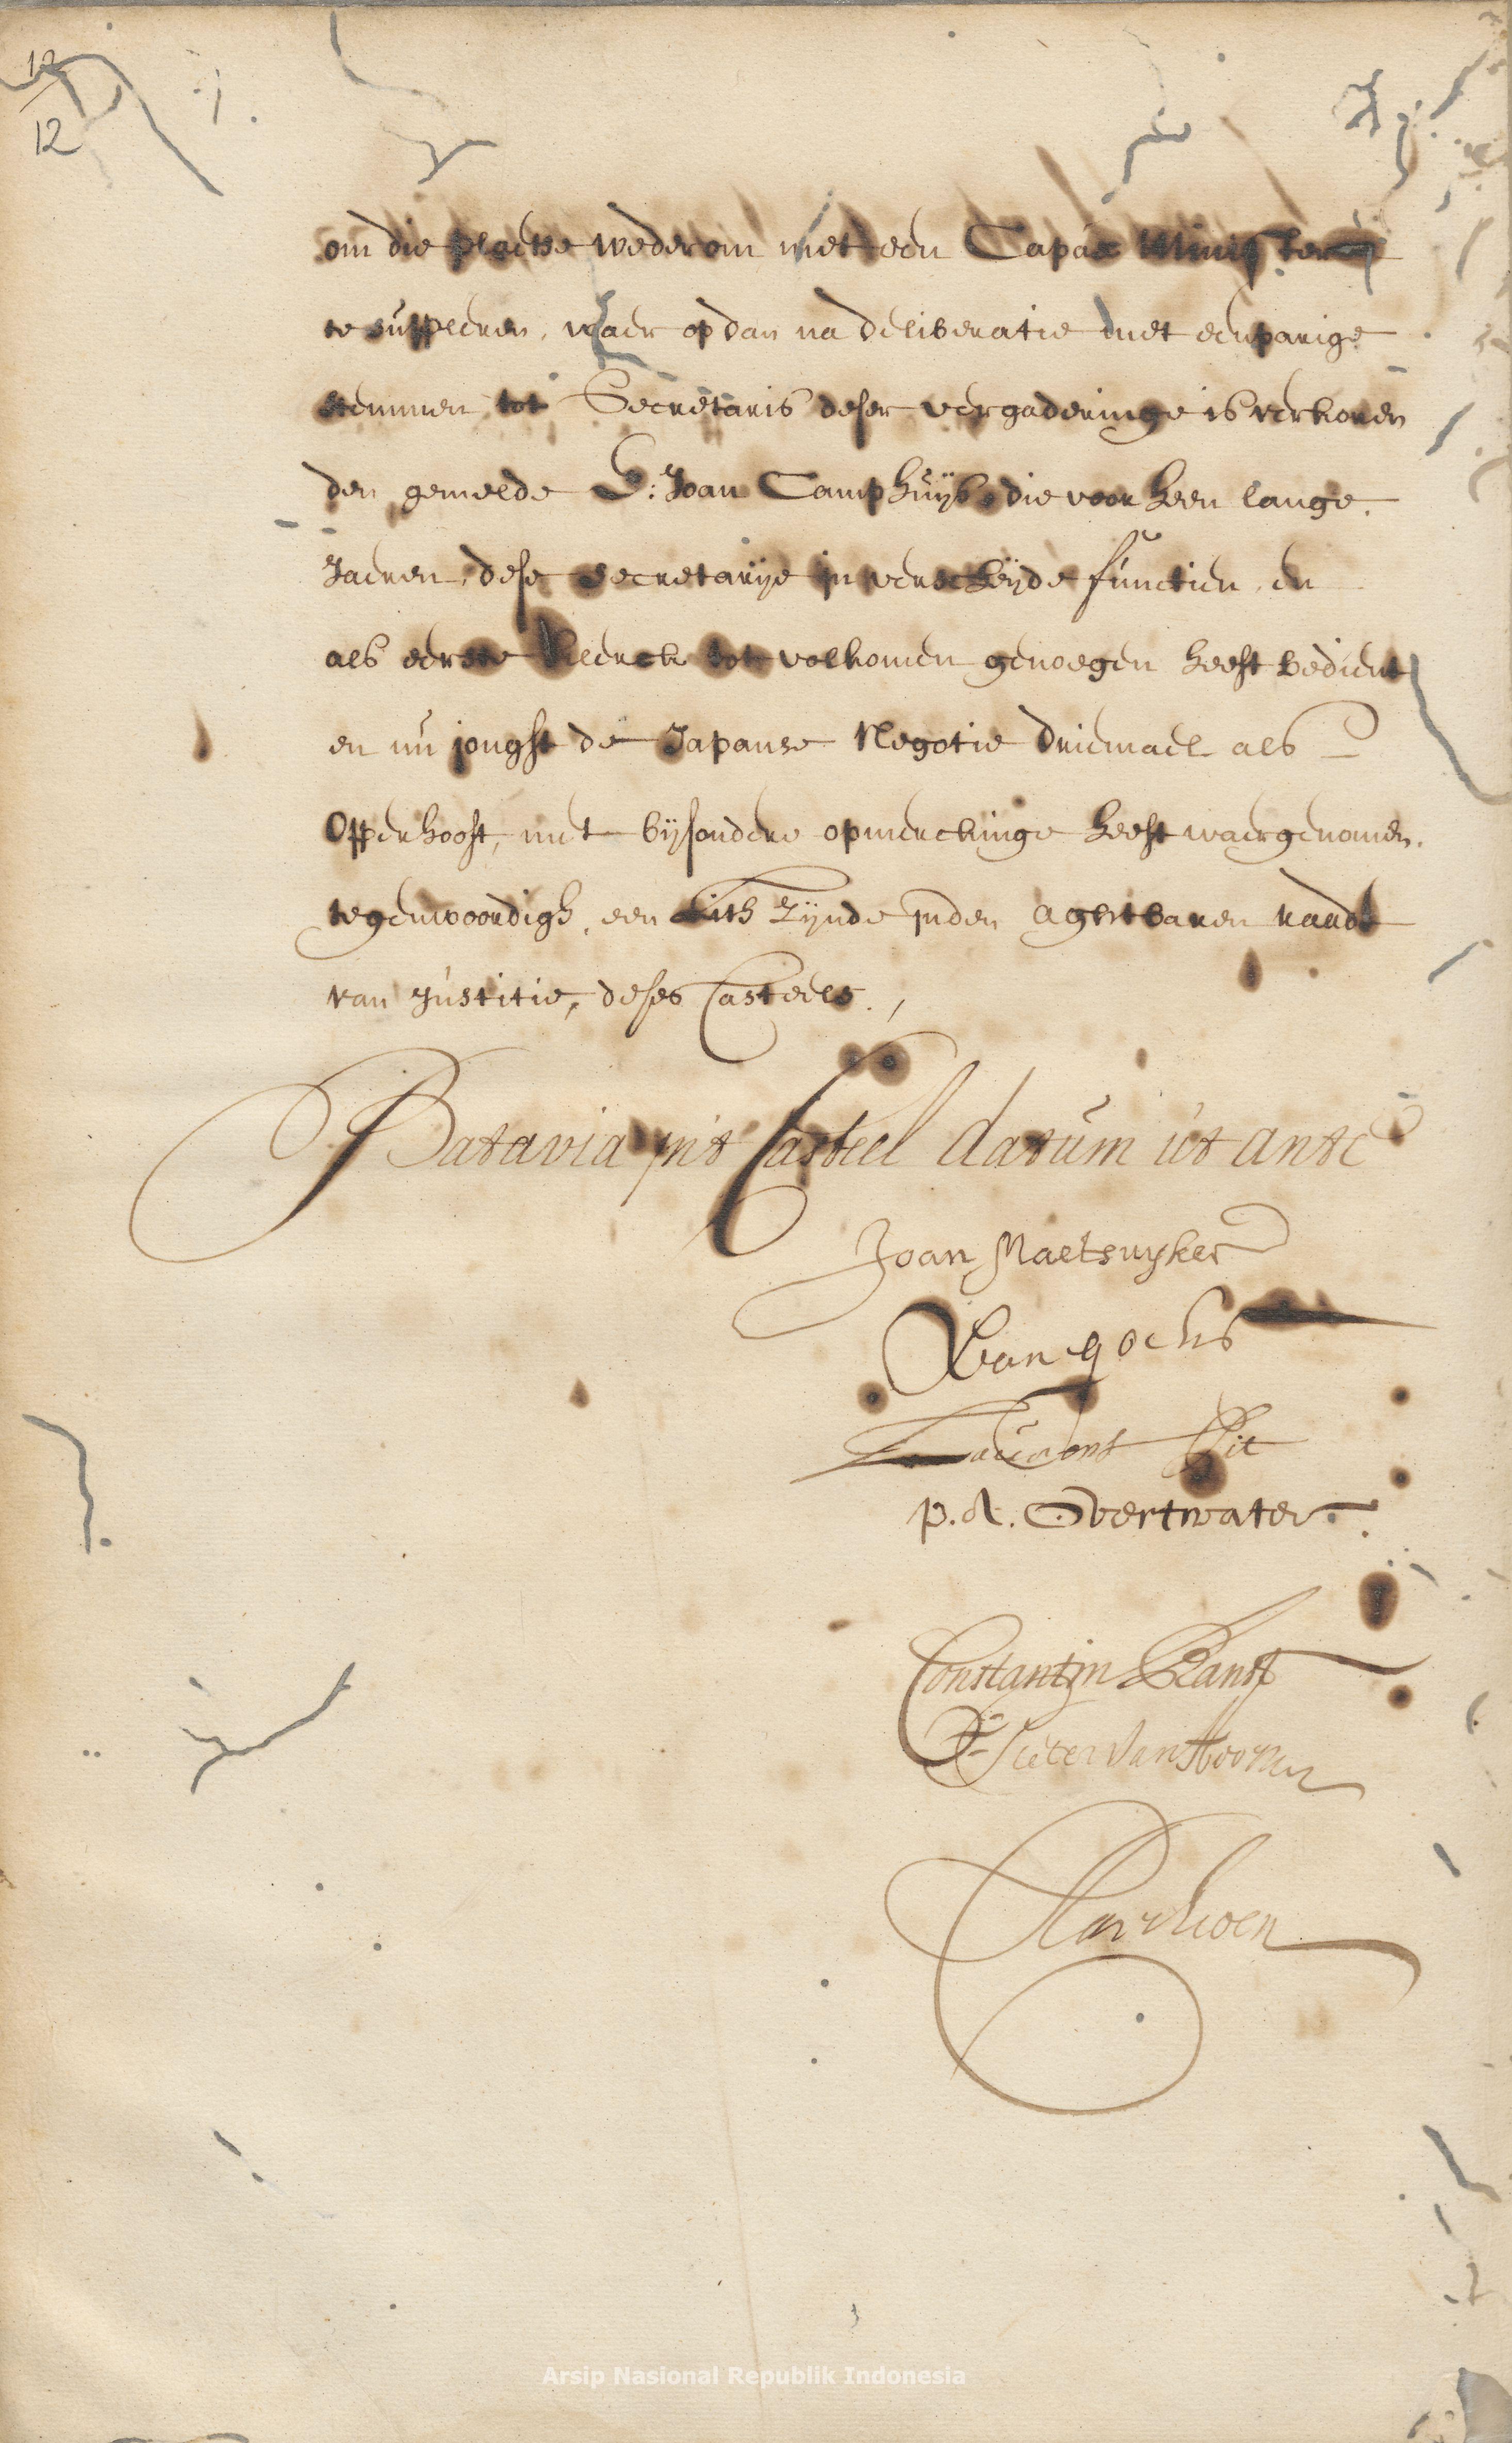 12
12
om die plaetse wederom met een Capax Minister
te suppleeren, waer op dan na deliberatie met eenparige
stemmen tot Secretaris deser vergaderinge is verkoren
den gemelde E: Joan Camphuijs, die voor heen lange
Jaeren, dese secretarije in verscheijde functien, en
als eerste kleerck tot volkomen genoegen heeft bedient
en nu jonghst de Japanse Negotie driemael als
Opperhooft, met bijsondere opmerckinge heeft waergenomen.
tegenwoordigh, een Lith zijnde inden aghtbaren raade
van Justitie, deses Casteels.
Batavia in't Casteel datum ut ante
Joan Maetsuyker
R van goens
Laurens Pit
p. A. Overtwater.
Constantijn Ranst
Pieter van Hoorn
Arsip Nasional Republik Indonesia